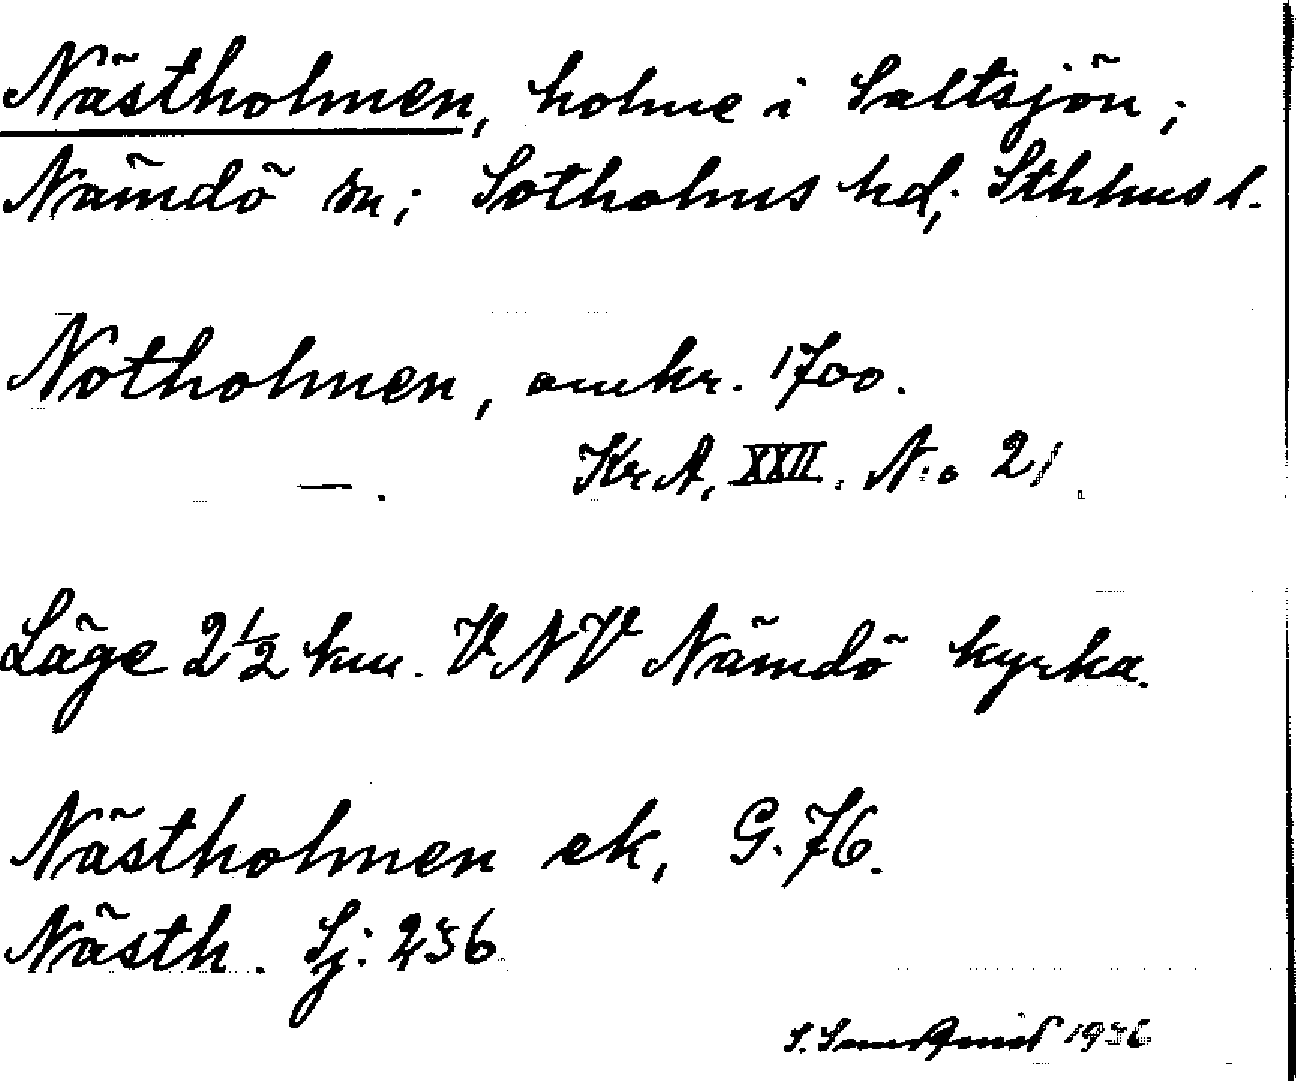 Nästholmen, holme i Saltsjön;
Nämdö sn; Sotholms hd; Sthlms l.
Notholmen, omkr. 1700.
—. Kr. A, XXII. N:o 21
Läge 2½ km. VNV Nämdö kyrka.
Nästholmen ek, G. 76.
Nästh. Sj: 256
S. 1936